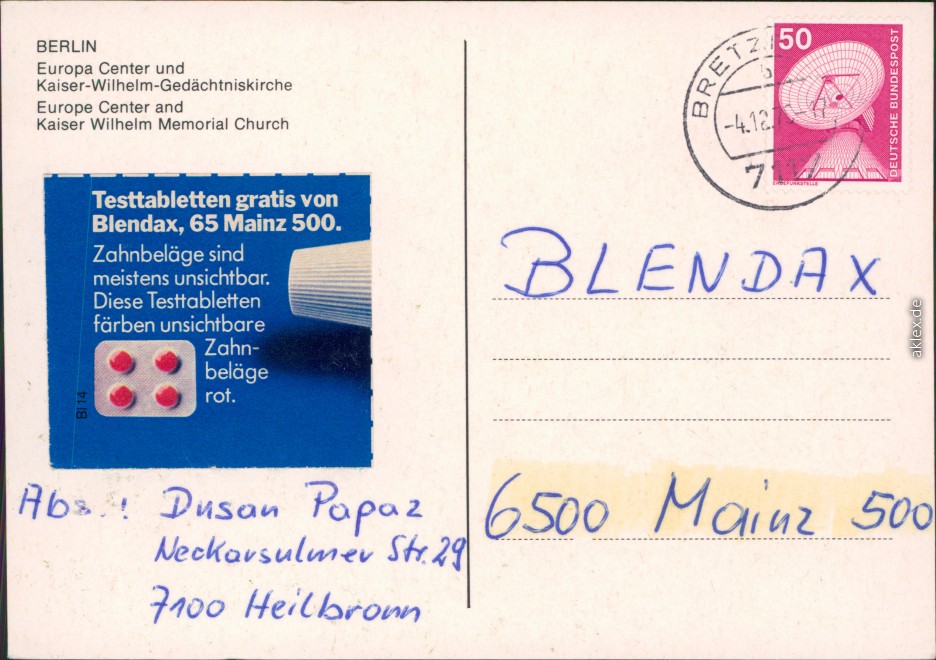 BERLIN
Europa Center und
Kaiser-Wilhelm-Gedächtniskirche
Europe Center and
Kaiser Wilhelm Memorial Church
Testtabletten gratis von
Blendax, 65 Mainz 500.
Zahnbeläge sind
meistens unsichtbar.
Diese Testtabletten
färben unsichtbare
Zahn-
beläge
rot.
Bl 14
Abs.:
Dusan Papaz
Neckarsulmer Str. 29
7100 Heilbronn
50
DEUTSCHE BUNDESPOST
ERDEFUNKSTELLE
b
-4.12.
BLENDAX
6500 Mainz 500
aklex.de